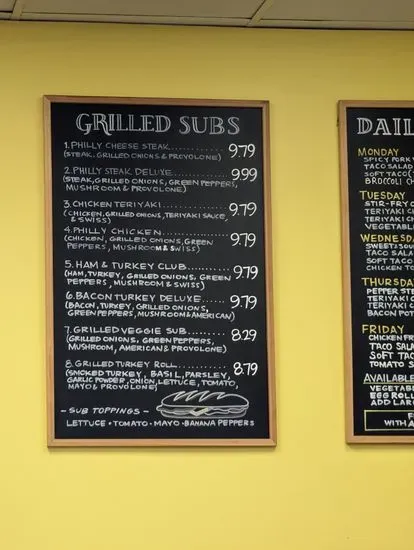 GRILLED SUBS
1. PHILLY CHEESE STEAK.............. 9.79
(STEAK, GRILLED ONIONS & PROVOLONE)
2. PHILLY STEAK DELUXE............ 9.99
(STEAK, GRILLED ONIONS, GREEN PEPPERS,
MUSHROOM & PROVOLONE)
3. CHICKEN TERIYAKI................. 9.79
(CHICKEN, GRILLED ONIONS, TERIYAKI SAUCE,
& SWISS)
4. PHILLY CHICKEN.................. 9.79
(CHICKEN, GRILLED ONIONS, GREEN
PEPPERS, MUSHROOM & SWISS)
5. HAM & TURKEY CLUB........... 9.79
(HAM, TURKEY, GRILLED ONIONS, GREEN
PEPPERS, MUSHROOM & SWISS)
6. BACON TURKEY DELUXE........ 9.79
(BACON, TURKEY, GRILLED ONIONS,
GREEN PEPPERS, MUSHROOM & AMERICAN)
7. GRILLED VEGGIE SUB........... 8.29
(GRILLED ONIONS, GREEN PEPPERS,
MUSHROOM, AMERICAN & PROVOLONE)
8. GRILLED TURKEY ROLL.......... 8.79
(SMOKED TURKEY, BASIL, PARSLEY,
GARLIC POWDER, ONION, LETTUCE, TOMATO,
MAYO & PROVOLONE)
- SUB TOPPINGS -
LETTUCE • TOMATO • MAYO • BANANA PEPPERS
DAIL
MONDAY
SPICY PORK
TACO SALAD
SOFT TACO (
BROCCOLI CH
TUESDAY
STIR-FRY C
TERIYAKI C
TERIYAKI
VEGETABL
WEDNESDA
SWEET & SOU
TACO SALA
SOFT TACO
CHICKEN TO
THURSDA
PEPPER STE
TERIYAKI C
TERIYAKI
BACON POT
FRIDAY
CHICKEN FR
TACO SALA
SOFT TAC
TOMATO S
AVAILABLE
VEGETABL
EGG ROLL
ADD LAR
F
WITH A